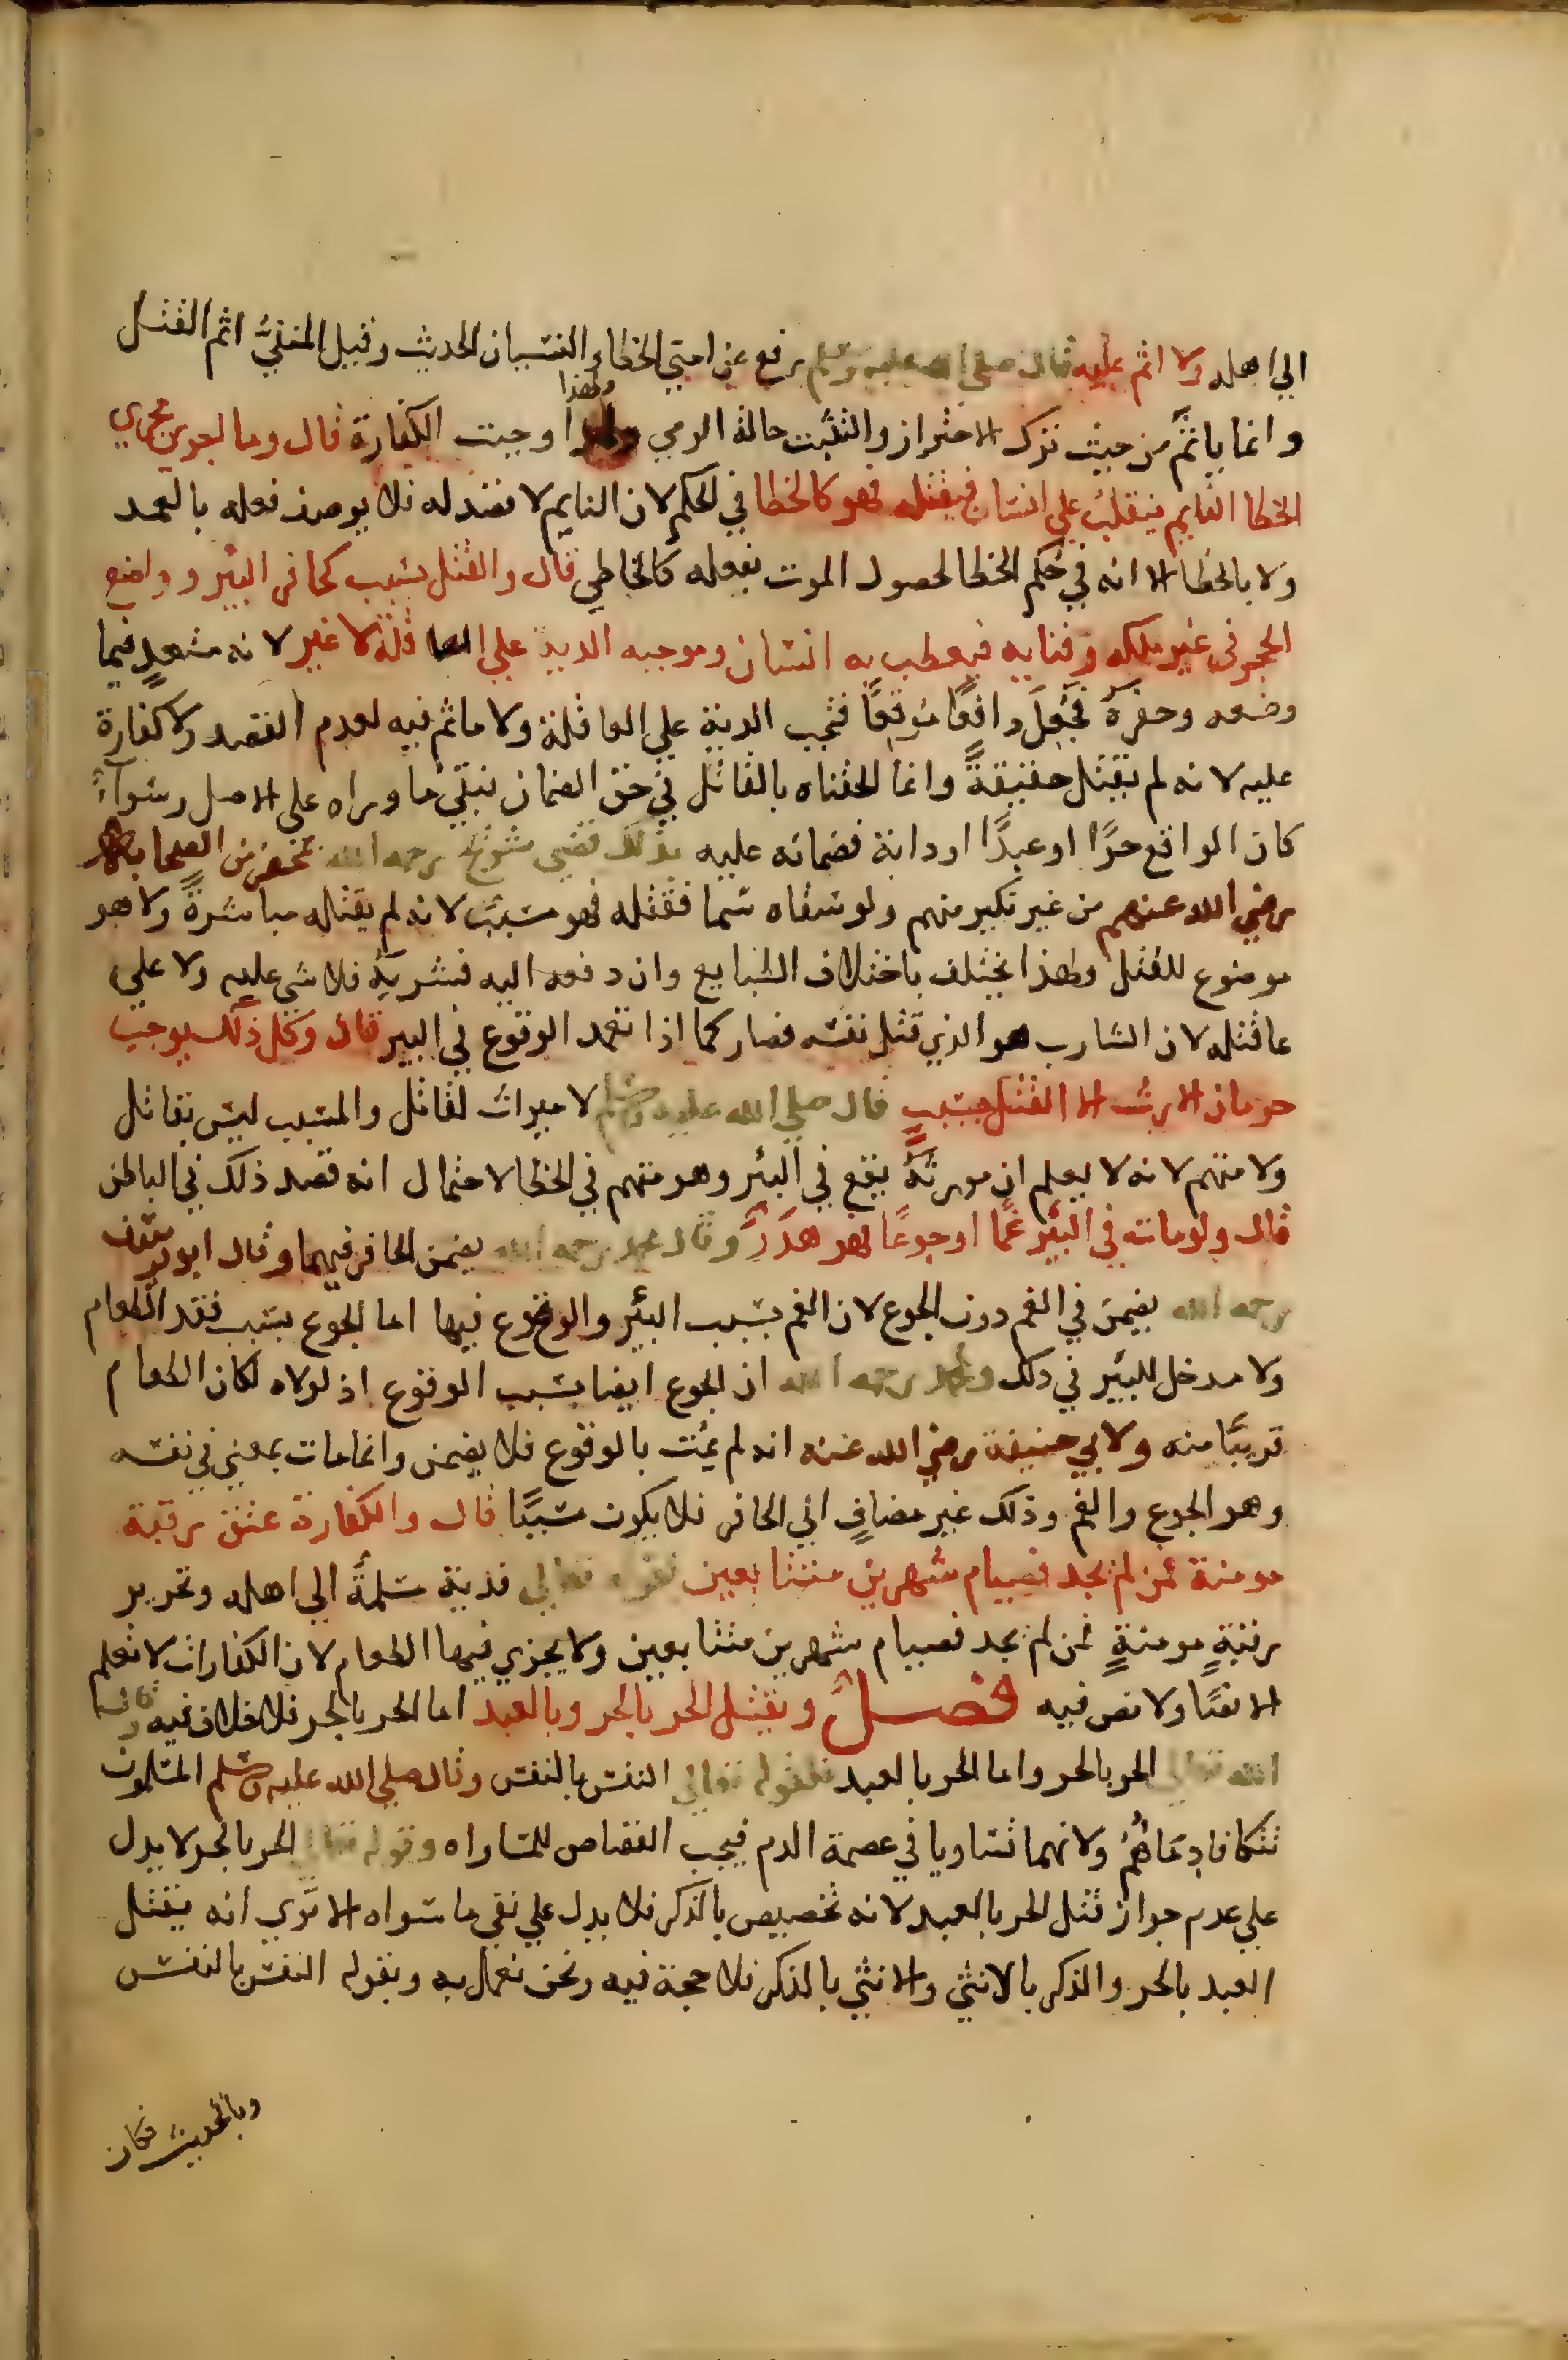 الي اهله ولا اثم عليه قال صلى الله عليه وسلم رفع عن امتي الخطا والنسيان الحديث وقيل المنفيُّ اثم القتل
وانما ياثم من حيث ترك الاحتراز والتثبت حالة الرمي ولهذا وجبت الكفارة قال وما اجري مجري
الخطا النايم ينقلب علي انسان فيقتله فهو كالخطا في الحكم لان النايم لا قصد له فلا يوصف فعله بالعمد
ولا بالخطا الا انه في حكم الخطا لحصول الموت بفعله كالخاطي قال والقتل بسبب كحافر البئر وواضع
الحجر في غير ملكه وفنايه فيعطب به انسان وموجبه الدية علي العاقلة لا غير لانه متعدٍ فيما
وضعه وحفرهَ فجُعِلَ دافعًا مُوقعًا فتجب الدية علي العاقلة ولا ماثم فيه لعدم القصد ولا كفارة
عليه لانه لم يقتل حقيقةً وانما الحقناه بالقاتل في حق الضمان فبقي ما وراه على الاصل وسوآءً
كان الواقع حرًّا او عبدًا او دابة فضمانه عليه بذلك قضي شريح رحمه الله بمحضر من الصحابة
رضي الله عنهم من غير نكير منهم ولو سقاه سما فقتله فهو مسبب لانه لم يقتله مباشرةً ولا هو
موضوع للقتل ولهذا يختلف باختلاف الطبايع وان دفعه اليه فشربه فلا شي عليه ولا علي
عاقلته لان الشارب هو الذي قتل نفسه فصار كما اذا تعمد الوقوع في البير قال وكل ذلك يوجب
حرمان الارث الا القتل بسبب قال صلي الله عليه وسلم لا ميراث لقاتل والمسبب ليس بقاتل
ولا متهم لانه لا يعلم ان مورثهُ يقع في البئر وهو متهم في الخطا لاحتمال انه قصد ذلك في الباطن
قال ولو مات في البئر غمًا او جوعًا فهو هدَرٌ وقال محمد رحمه الله يضمن الحافر فيهما وقال ابو يوسف
رحمه الله يضمن في الغم دون الجوع لان الغم بسبب البئر والوقوع فيها اما الجوع بسبب فقد الطعام
ولا مدخل للبئر في ذلك ولمحمد رحمه الله ان الجوع ايضا بسبب الوقوع اذ لولاه لكان الطعام
قريبًا منه ولابي حنيفة رضي الله عنه انه لم يمُت بالوقوع فلا يضمن وانما مات بمعني في نفسه
وهو الجوع والغم وذلك غير مضافٍ الي الحافر فلا يكون مسببًا قال والكفارة عتق رقبة
مومنة فمن لم يجد فصيام شهرين متتابعين لقوله تعالي فدية مسلمةً الي اهله وتحرير
رقبةٍ مومنةٍ فمن لم يجد فصيام شهرين متتابعين ولا يجزي فيها الطعام لان الكفارات لا تعلم
الا نصًا ولا نص فيه فصل ويقتل الحر بالحر وبالعبد اما الحر بالحر فلا خلاف فيه قال
الله تعالي الحر بالحر واما الحر بالعبد فلقوله تعالي النفس بالنفس وقال صلي الله عليه وسلم المسلمون
تتكافا دِمَاؤُهُمُ ولانهما تساويا في عصمة الدم فيجب القصاص للمساواه وقوله تعالي الحر بالحر لا يدل
علي عدم جواز قتل الحر بالعبد لانه تخصيص بالذكر فلا يدل علي نفي ما سواه الا تري انه يقتل
العبد بالحر والذكر بالانثي والانثي بالذكر فلا حجة فيه ونحن نعمل به وبقوله النفس بالنفس
وبالحديث فكان